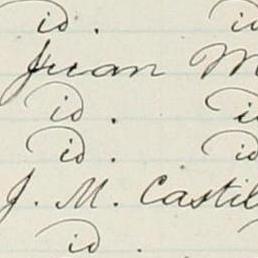 id. id
Juan M
id. id
id. id
J. M. Castil
id.